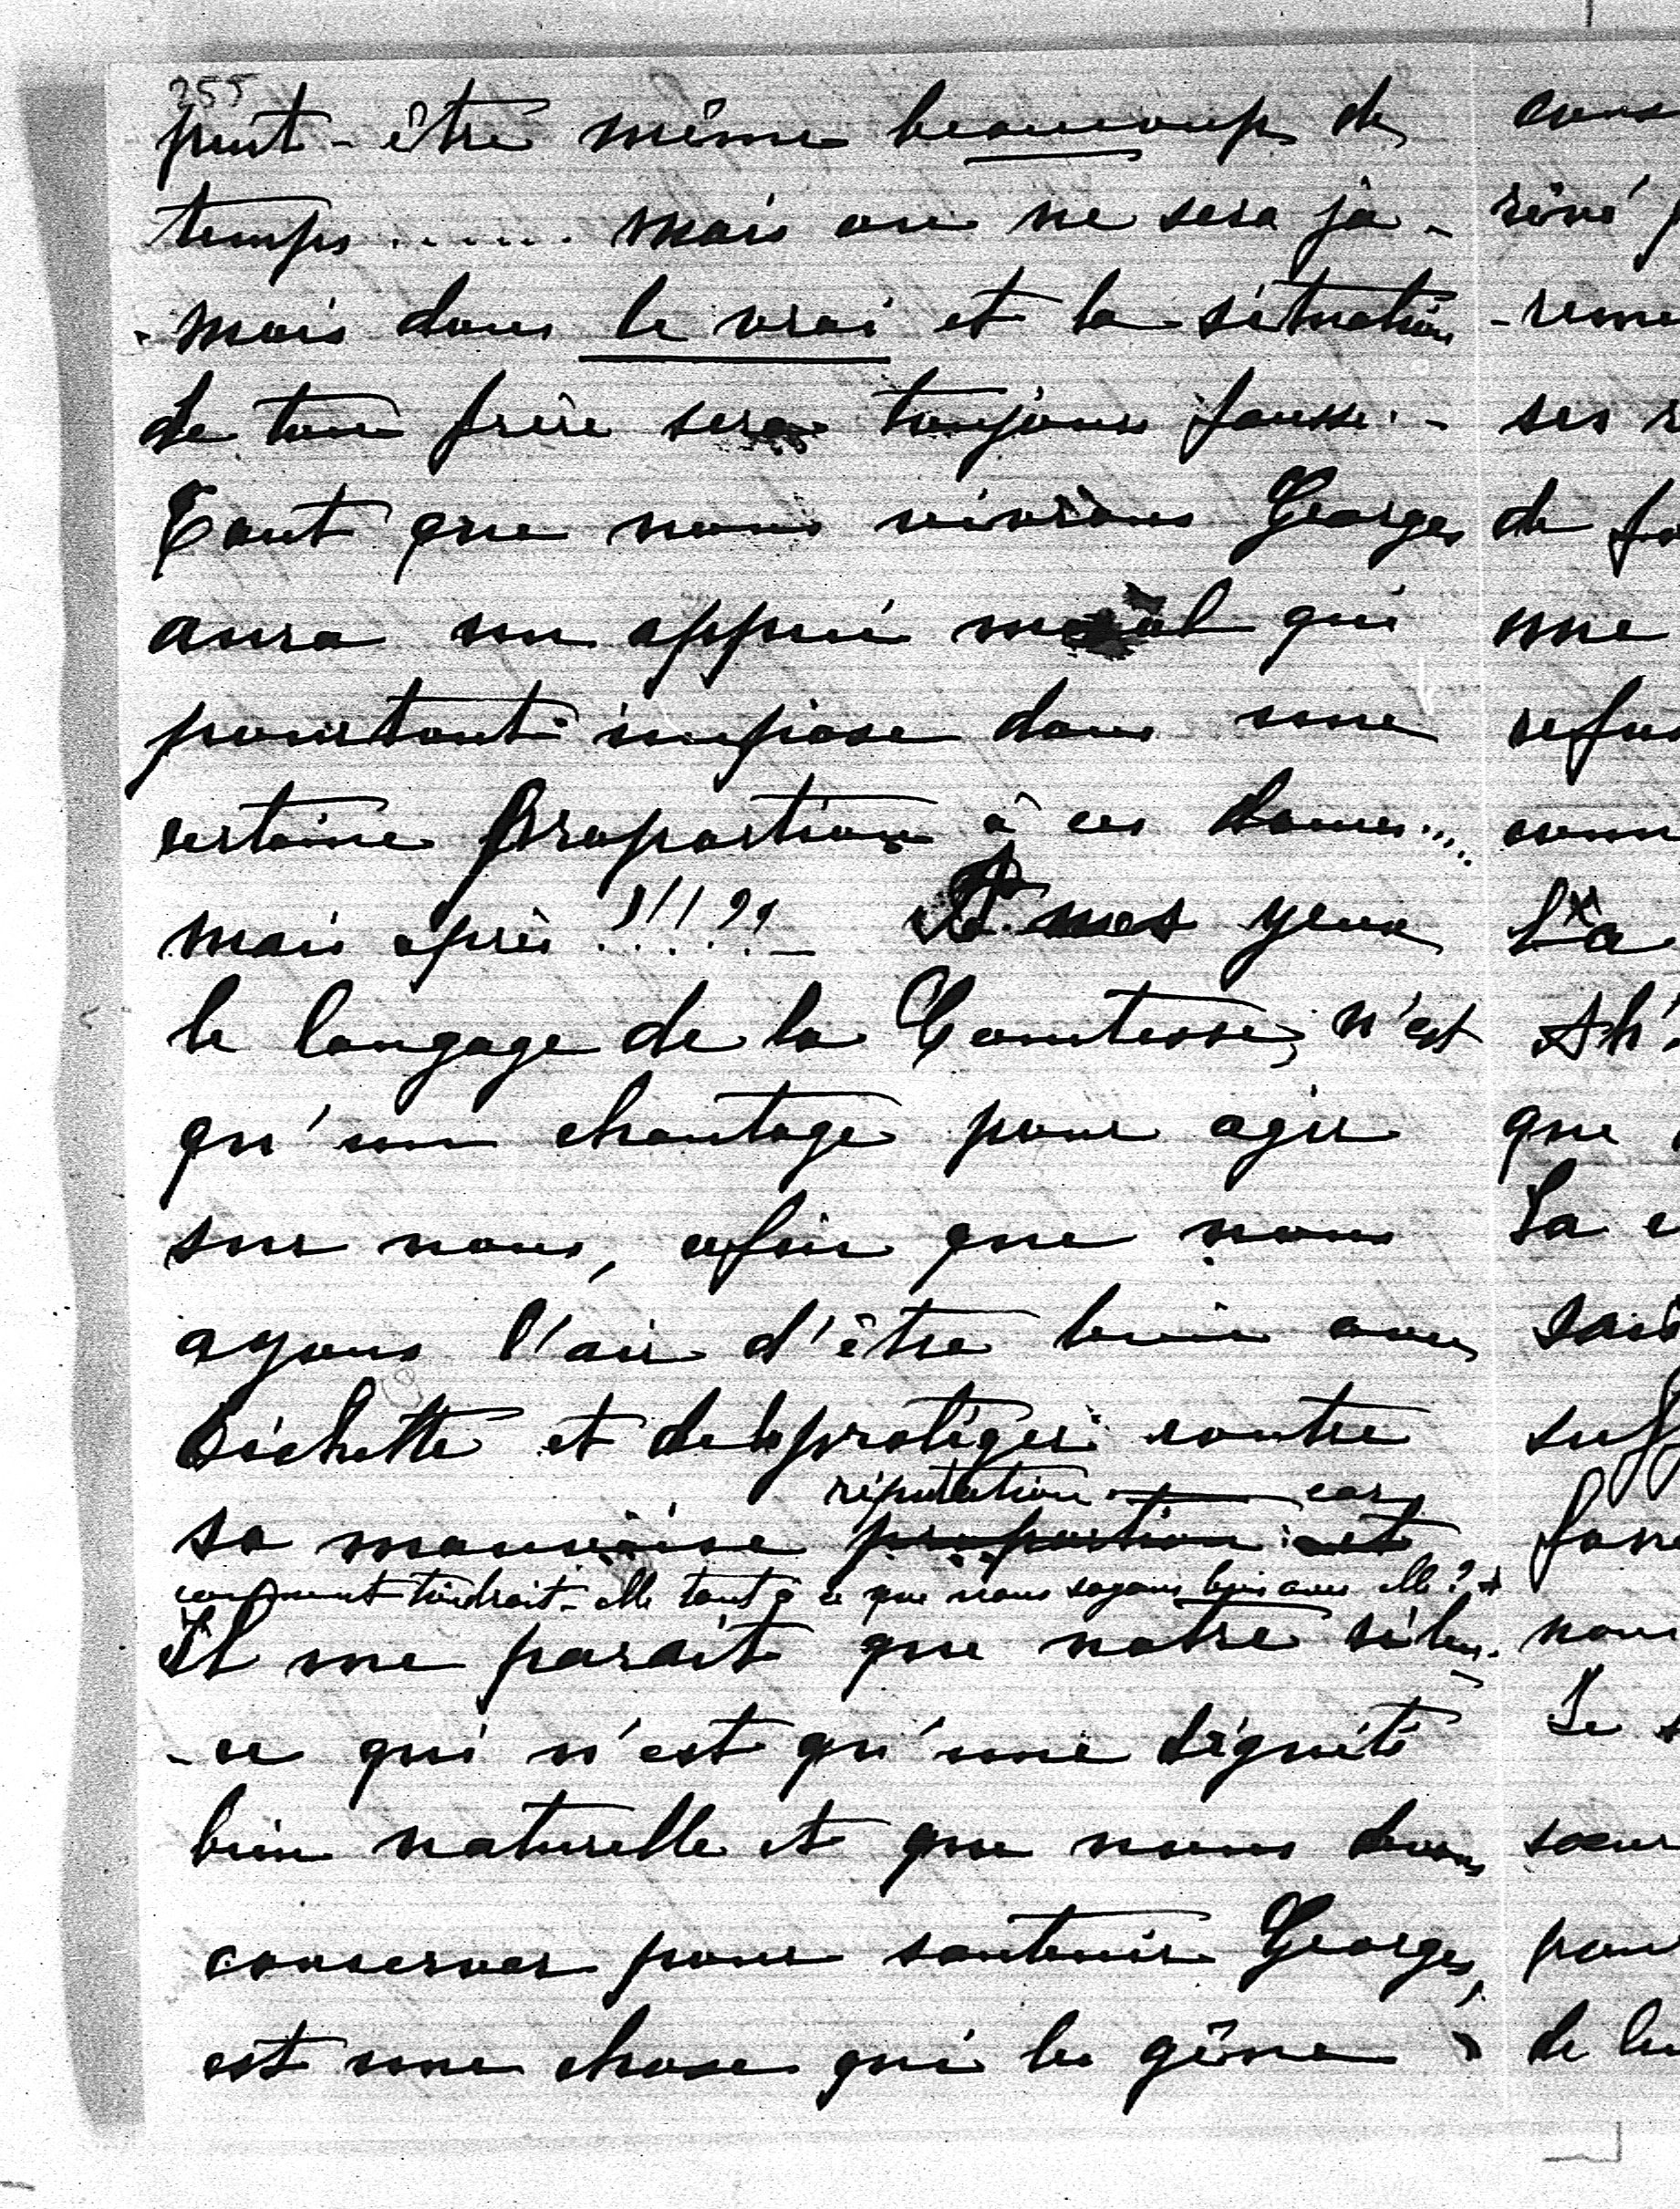 255
peut-être même beaucoup de
temps ...... mais on ne sera ja-
-mais dans le vrai et la situation
de ton frère sera toujours fausse. -
Tant que nous vivrons Georges
aura un appui moral qui
pourtant impose dans une
certaine proportion à ces dames....
mais après !!!!?? - A mes yeux
le langage de la Comtesse, n'est
qu'un chantage pour agir
sur nous, afin que nous
ayons l'air d'être bien avec
Bichette et de la protéger contre
réputation car
sa mauvaise proportion et
comment tiendrait-elle tant à ce que nous soyons bien avec elle ?
Il me parait que notre silen-
-ce qui n'est qu'une dignité
bien naturelle et que nous devons
conserver pour soutenir Georges,
est une chose qui les gêne
rêvé
ses
de
une
L'a
Ah!
que
La
nous
Le
soeur
de